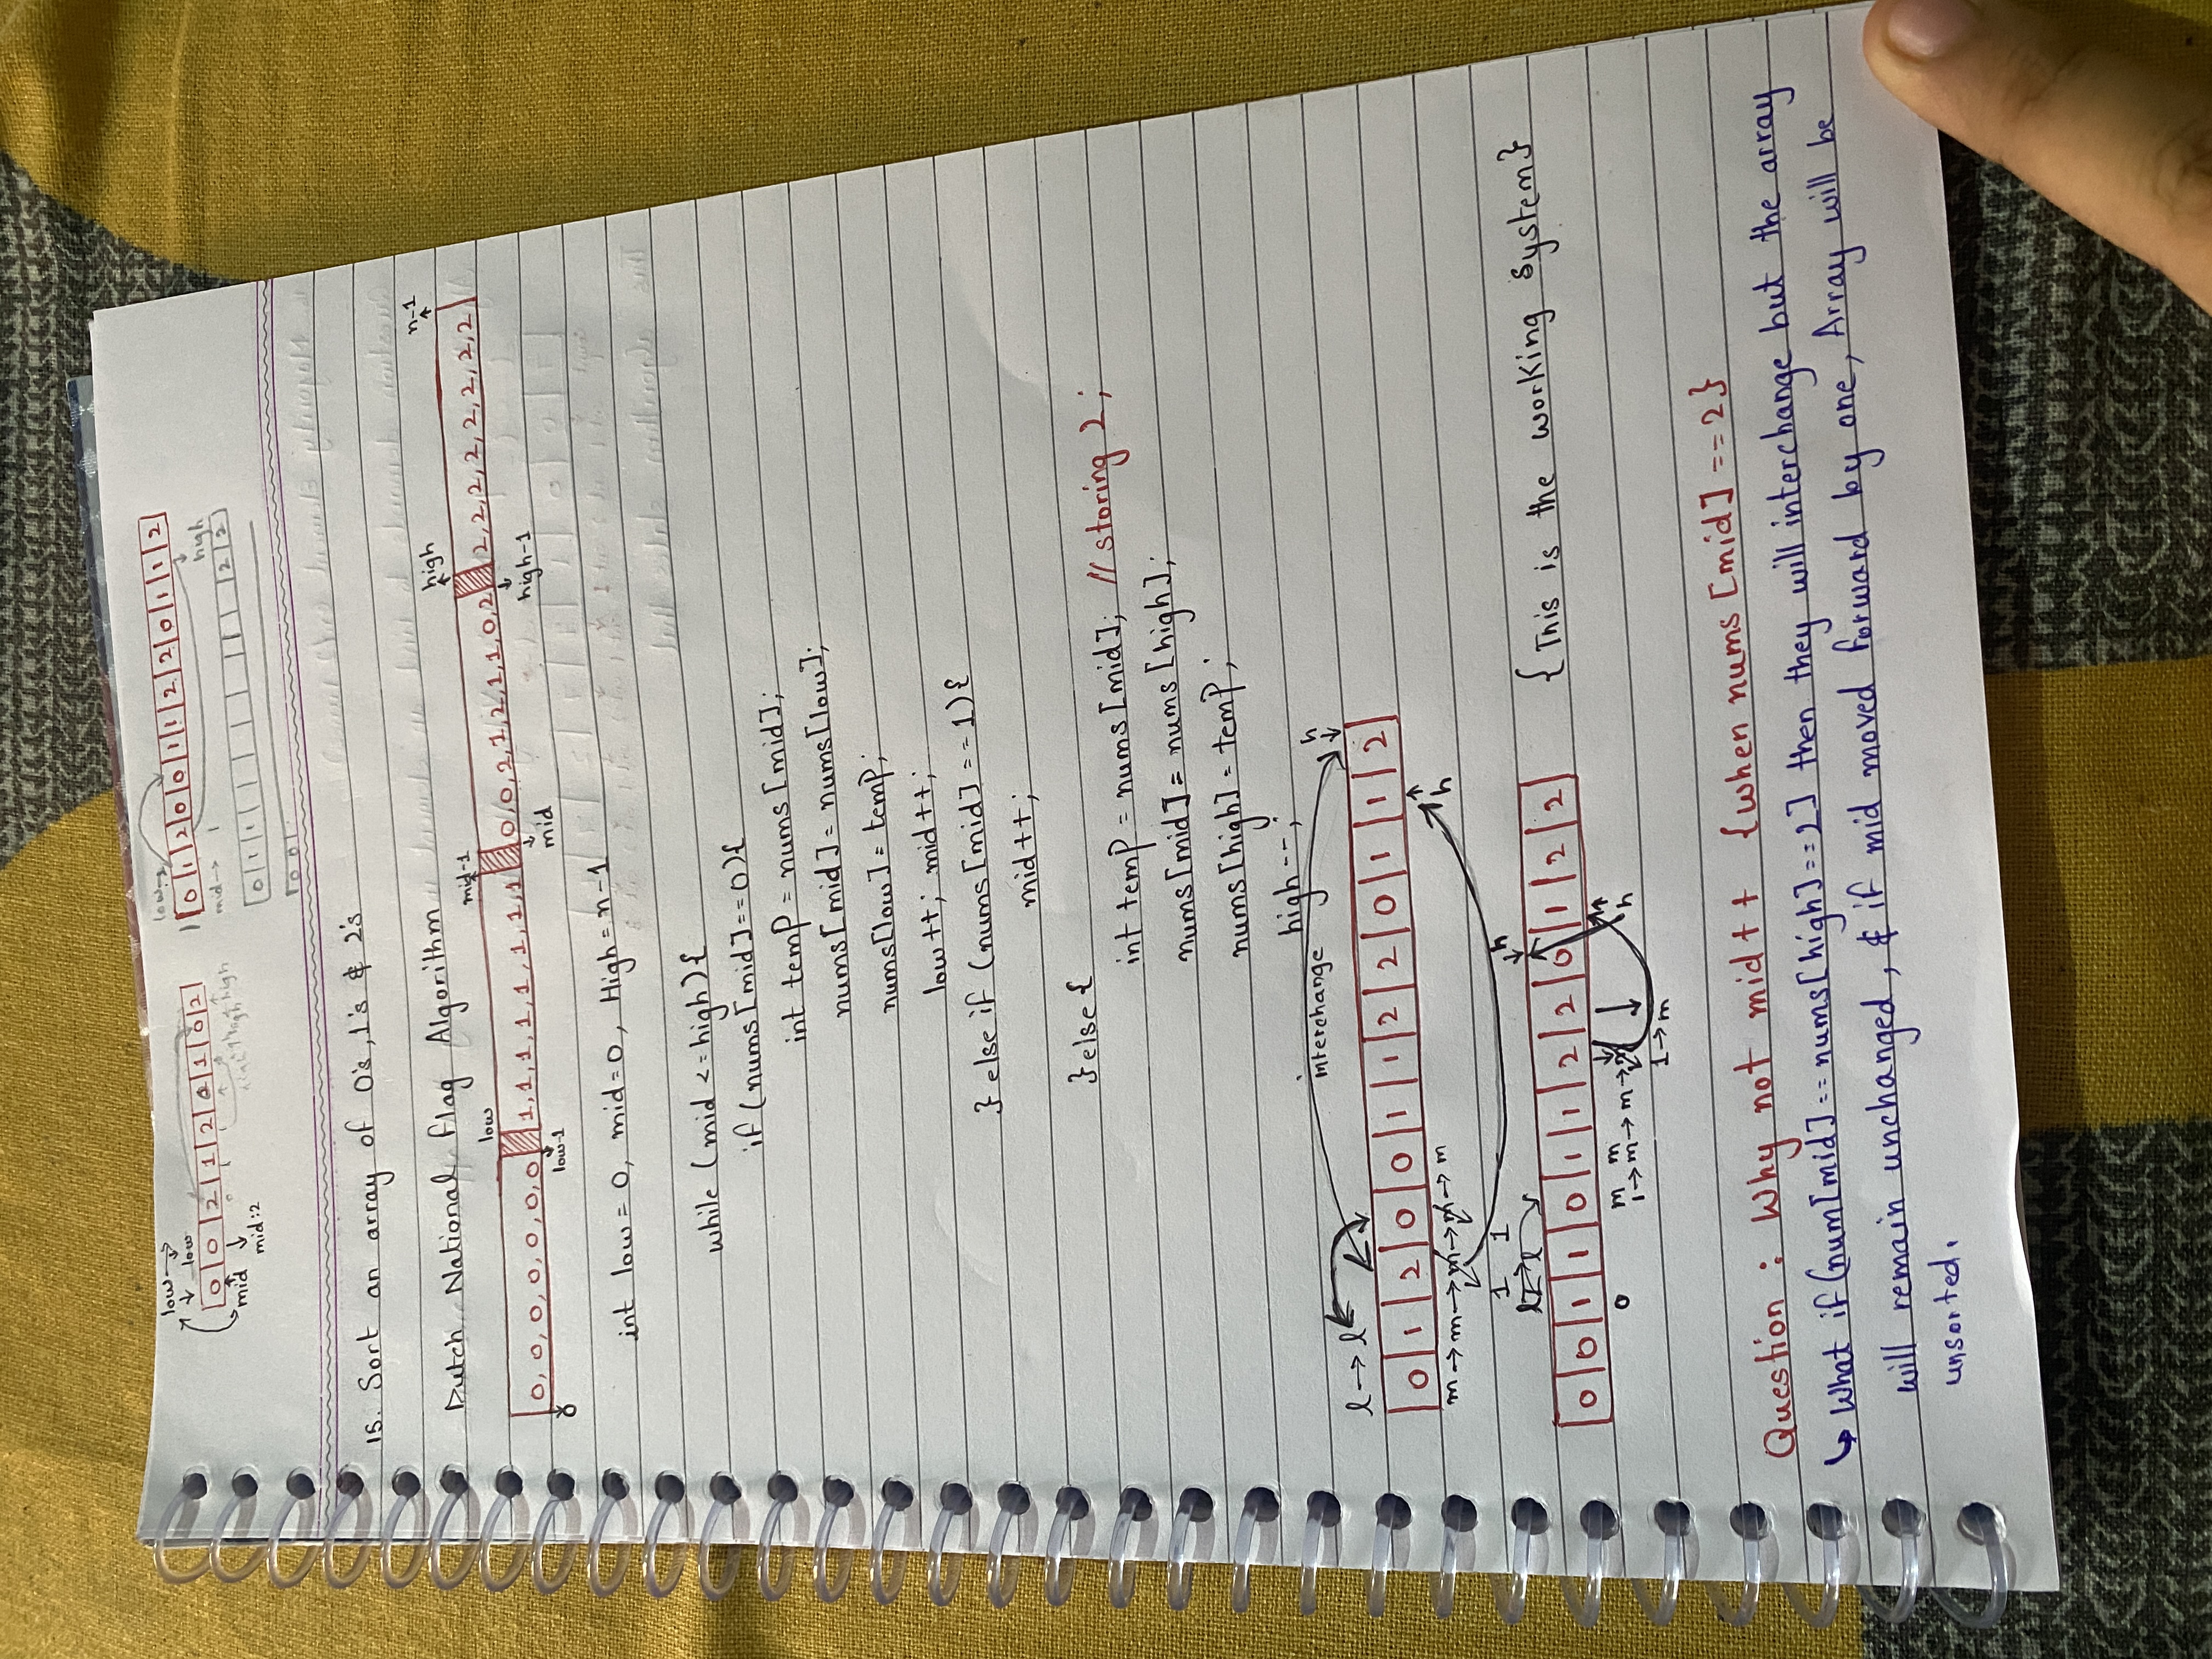 low →
low
0 0 2 1 2 0 1 0 2
mid
mid:2
high
low
0 1 2 0 0 1 1 2 2 0 1 1 2
mid → 1
high
0 1 1 2 2
0 0 1
15. Sort an array of 0's, 1's & 2's
Dutch National Flag Algorithm
low mid-1 high n-1
0, 0, 0, 0, 0, 0, 0 1, 1, 1, 1, 1, 1, 1, 1 0, 0, 2, 1, 2, 1, 1, 0, 2 2, 2, 2, 2, 2, 2, 2, 2
0 low-1 mid high-1
int low = 0, mid=0, High = n-1
while (mid <= high){
if (nums[mid]==0){
int temp = nums[mid];
nums[mid]= nums[low];
nums[low]= temp;
low++; mid++;
} else if (nums[mid]==1){
mid++;
} else {
int temp = nums[mid]; // storing 2;
nums[mid]= nums[high];
nums[high]= temp;
high--;
interchange
l → l h
0 1 2 0 0 1 1 2 2 0 1 1 2
m → m → m → m → m h
1 1
l → l h
0 0 1 1 0 1 1 2 2 0 1 2 2 {This is the working system}
0 m m
1 → m → m → m h
1 → m
Question : Why not mid++ {when nums[mid]==2}
↳ What if (num[mid]==nums[high]==2] then they will interchange but the array
will remain unchanged, & if mid moved forward by one, Array will be
unsorted.